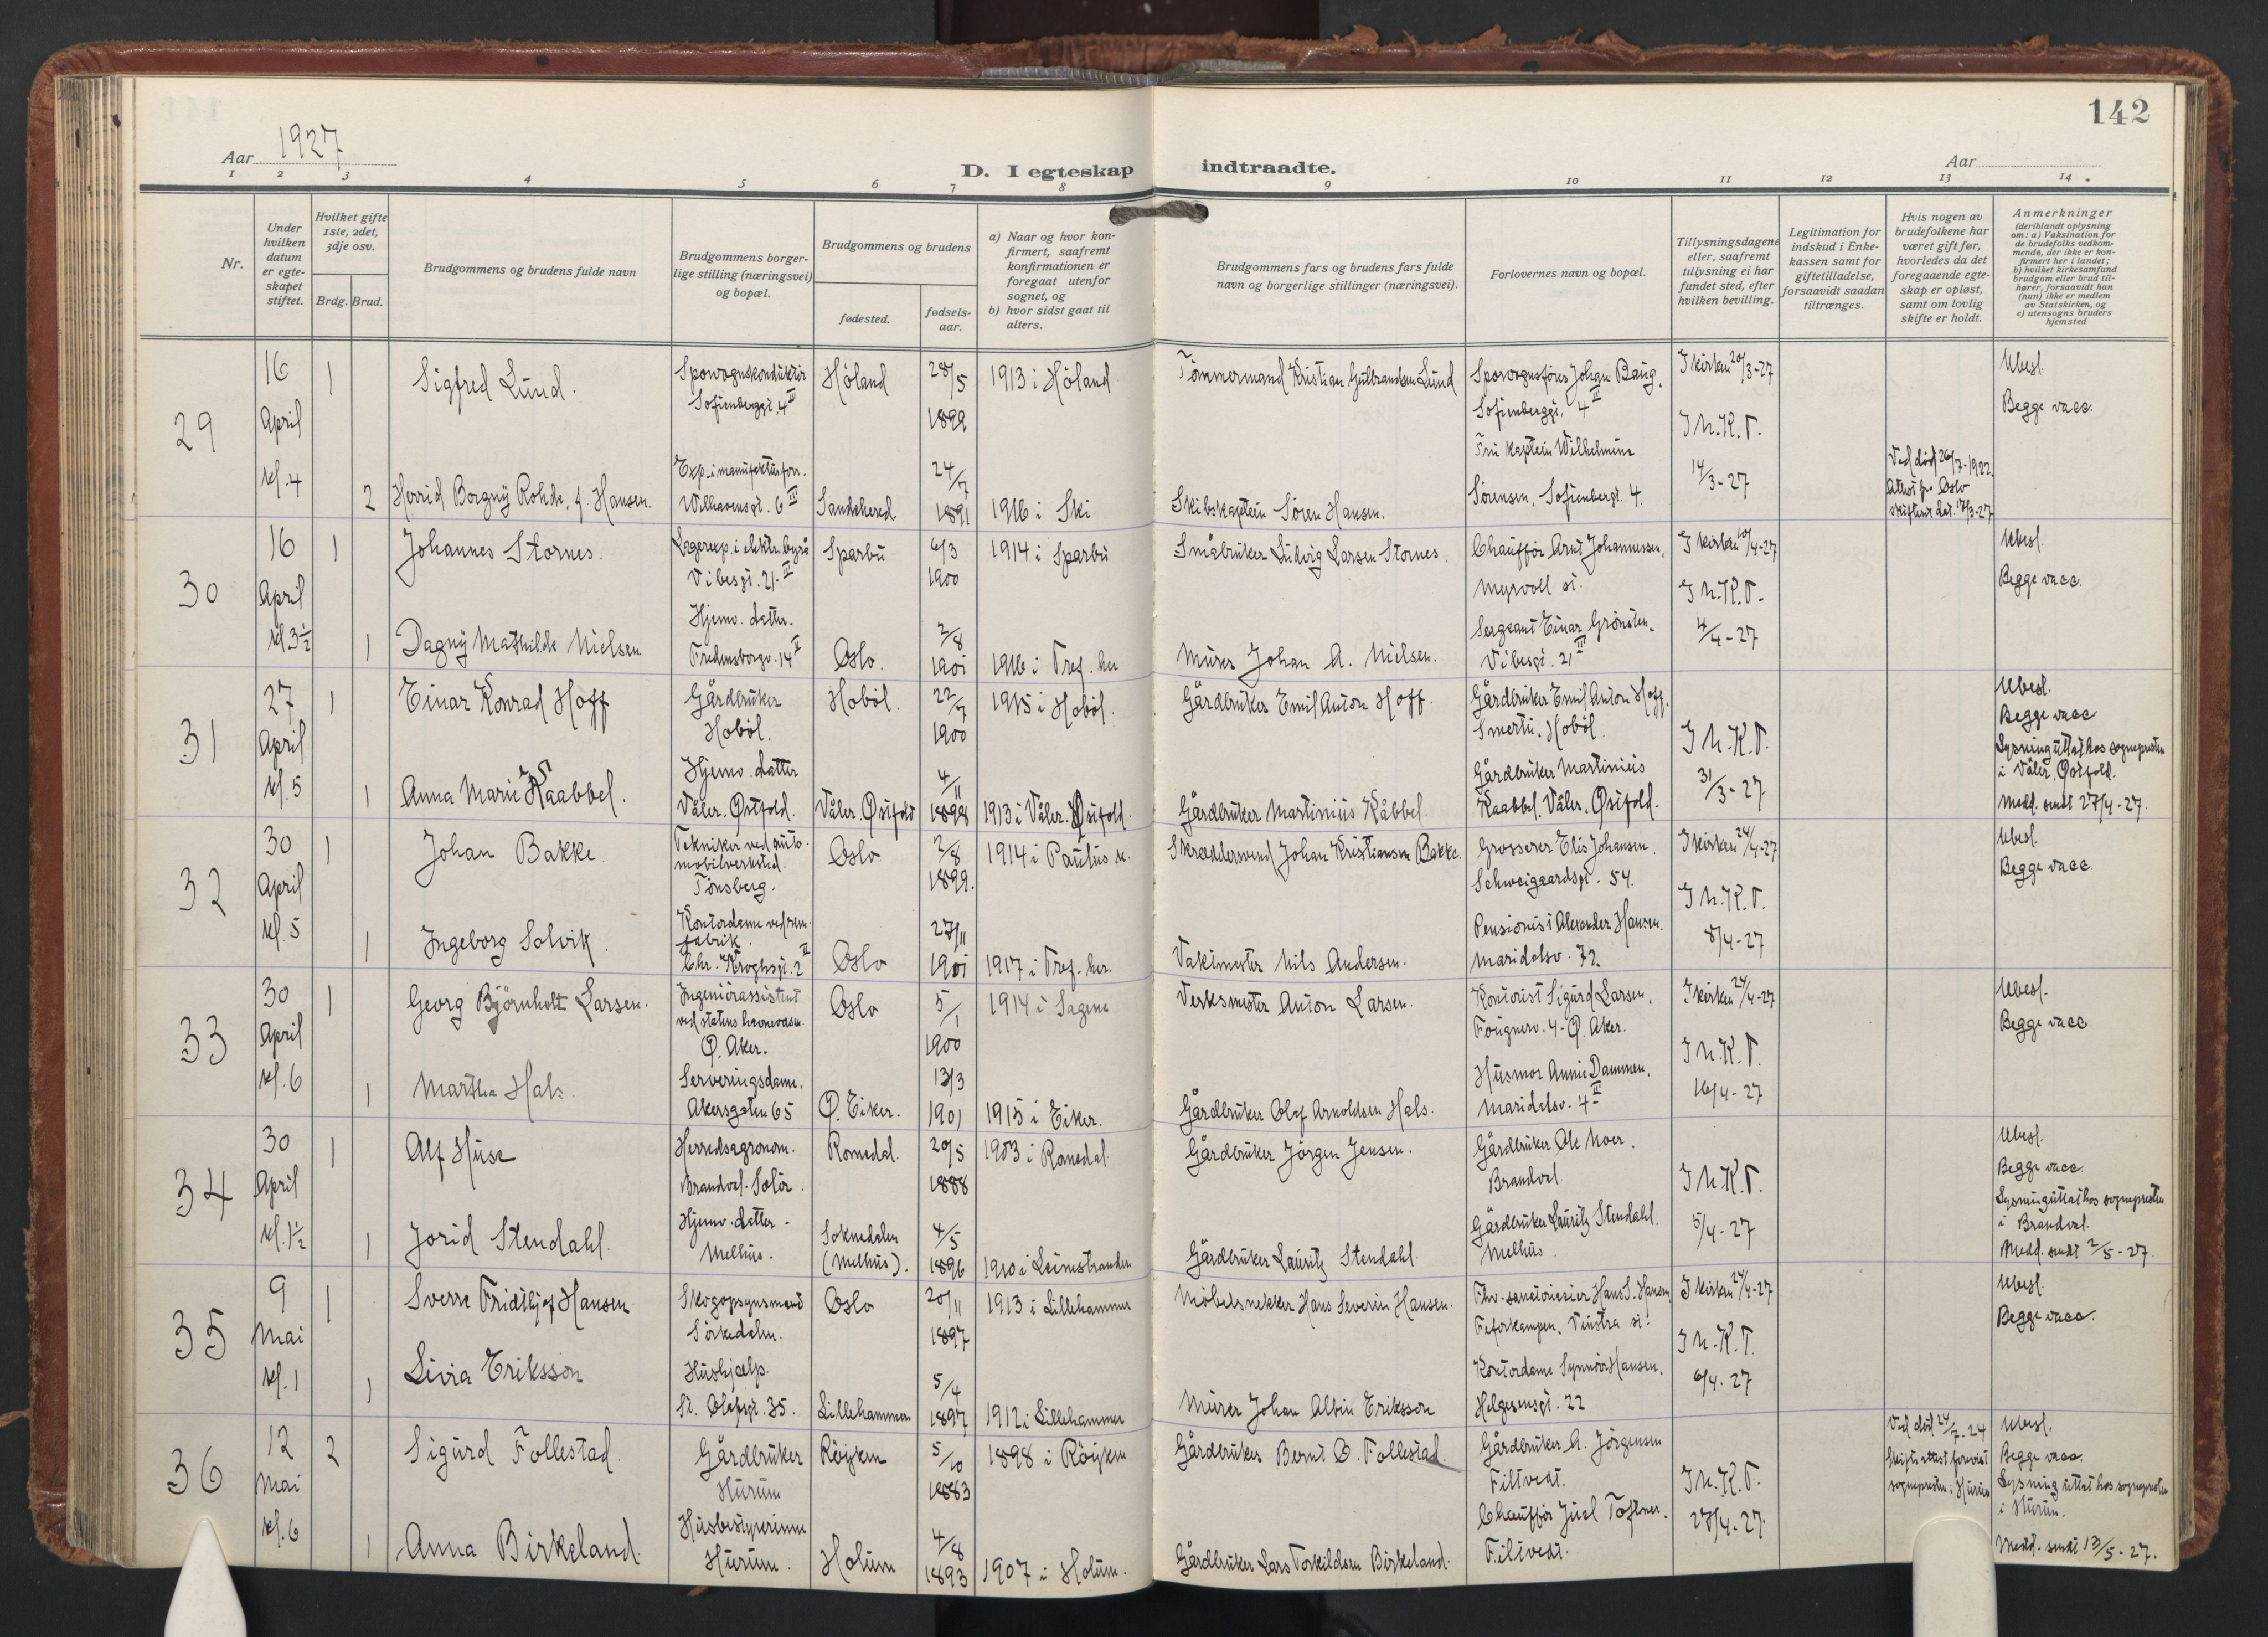 142
Aar 1927
D. I egteskap indtraadte.
Aar
1 2 3 4 5 6 7 8 9 10 11 12 13 14
Nr.
Under hvilken datum er egteskapet stiftet.
Hvilket gifte 1ste, 2det, 3dje osv.
Brdg. Brud.
Brudgommens og brudens fulde navn
Brudgommens borgerlige stilling (næringsvei) og bopæl.
Brudgommens og brudens
fødested.
fødselsaar.
a) Naar og hvor konfirmert, saafremt konfirmationen er foregaat utenfor sognet, og
b) hvor sidst gaat til alters.
Brudgommens fars og brudens fars fulde navn og borgerlige stillinger (næringsvei).
Forlovernes navn og bopæl.
Tillysningsdagene eller, saafremt tillysning ei har fundet sted, efter hvilken bevilling.
Legitimation for indskud i Enkekassen samt for giftetilladelse, forsaavidt saadan tiltrænges.
Hvis nogen av brudefolkene har været gift før, hvorledes da det foregaaende egteskap er opløst, samt om lovlig skifte er holdt.
Anmerkninger
(deriblandt oplysning om: a) Vaksination for de brudefolks vedkommende, der ikke er konfirmert her i landet;
b) hvilket kirkesamfund brudgom eller brud tilhører, forsaavidt han (hun) ikke er medlem av Statskirken, og
c) utensogns bruders hjemsted
29
16 April kl. 4
1 Sigfred Lund. Sporvognskonduktør Sofienberggt. 4 III Høland 28/5 1899 1913 i Høland Tømmermand Kristian Gulbrandsen Lund
Sporvognsfører Johan Baug. Sofienberggt. 4 III
I kirken 20/3-27
Ubesl.
Begge vacc.
2 Herrid Borgny Rohde, f. Hansen. Exp. i manufakturforr. Welhavensgt. 6 III Sandeherred 24/7 1891 1916 i Ski Skibskaptein Søren Hansen.
Fru kaptein Wilhelmine Sørensen, Sofienbergt. 4.
I h. K. T. 14/3-27
Ved død 26/7-1922. Attest fra Oslo skifterett dat. 17/3-27
30
16 April kl. 3 1/2
1 Johannes Stornes. Lagerexp. i elektr. byrå Vibesgt. 21 III Sparbu 6/3 1900 1914 i Sparbu Småbruker Ludvig Larsen Stornes.
Chauffør Arnt Johannessen, Myrvoll st.
I kirken 10/4-27
Ubesl.
Begge vacc.
1 Dagny Mathilde Nielsen Hjemv. datter. Fredensborgv. 14 II Oslo. 2/8 1901 1916 i Tref. her Murer Johan A. Nielsen.
Sergeant Einar Grønsten. Vibesgt. 21 III
I h. K. T. 4/4-27
31
27 April kl. 5
1 Einar Konrad Hoff Gårdbruker Hobøl. Hobøl. 22/7 1900 1915 i Hobøl. Gårdbruker Emil Anton Hoff.
Gårdbruker Emil Anton Hoff. Smertu. Hobøl.
Ubesl.
Begge vacc
1 Anna Marie Kaabbel. Hjemv. datter Våler. Østfold. Våler. Østfold 4/11 1898 1913 i Våler. Østfold Gårdbruker Martinius Kåbbel.
Gårdbruker Martinius Kaabbel. Våler. Østfold.
I h. K. T. 31/3-27
Lysning uttat hos sognepresten i Våler. Østfold.
Medd. sendt 27/4-27.
32
30 April kl. 5
1 Johan Bakke. Tekniker ved automobilverksted. Tønsberg. Oslo 2/8 1899. 1914 i Paulus k. Skræddersvend Johan Kristiansen Bakke.
Grosserer Elis Johansen. Schweigaardsgt. 54.
I kirken 24/4-27
Ubesl.
Begge vacc.
1 Ingeborg Solvik. Kontordame ved fabrik. Chr. Kroghsgt. 2 II Oslo 27/11 1901 1917 i Tref. her. Vaktmester Nils Andersen.
Pensionist Alexander Hansen. Maridalsv. 72.
I h. K. T. 8/4-27
33
30 April kl. 6
1 Georg Bjørnholt Larsen. Ingeniørassistent ved statens havnevæsen. Ø. Aker. Oslo 5/1 1900 1914 i Sagene Verksmester Anton Larsen.
Kontorist Sigurd Larsen. Fougnerv. 4 - Ø. Aker.
I kirken 24/4-27
Ubesl.
Begge vacc
1 Martha Hals. Serveringsdame. Akersgaten 65 Ø. Eiker. 13/3 1901 1915 i Eiker. Gårdbruker Olof Arnoldsen Hals.
Husmor Annie Dammen. Maridalsv. 4 III
I h. K. T. 16/4-27
34
30 April kl. 1 1/2
1 Alf Huse Herredsagronom. Brandval. Solør. Romedal. 20/5 1888 1903 i Romedal. Gårdbruker Jørgen Jensen.
Gårdbruker Ole Noer. Brandval
Ubesl.
Begge vacc.
1 Jorid Stendahl. Hjemv. datter. Melhus. Soknedalen (Melhus). 4/5 1896 1910 i Leinstranden Gårdbruker Lauritz Stendahl.
Gårdbruker Lauritz Stendahl. Melhus.
I h. K. T. 5/4-27
Lysning uttat hos sognepresten i Brandval.
Medd. sendt 2/5-27.
35
9 Mai kl. 1
1 Sverre Fridthjof Hansen Skogopsynsmand Sørkedalen. Oslo 20/11 1897 1913 i Lillehammer Møbelsnekker Hans Severin Hansen.
Hans S. Hansen, Feforkampen. Vinstra st.
I kirken 24/4-27
Ubesl.
Begge vacc.
1 Livia Eriksson Hushjælp. St. Olafsgt. 35. Lillehammer 5/4 1897 1912 i Lillehammer Murer Johan Albin Eriksson
Kontordame Synnöve Hansen. Helgesensgt. 22
I h. K. T. 6/4-27
36
12 Mai kl. 6
2 Sigurd Follestad. Gårdbruker Hurum Røyken 5/10 1883 1898 i Røyken Gårdbruker Bernt O. Follestad.
Gårdbruker A. Jörgensen Filtvedt.
Ved død 24/7-24 Skifteattest forevist sognepresten i Hurum
Ubesl.
Begge vacc.
1 Anna Birkeland. Husbestyrerinne Hurum. Holum 4/8 1893 1907 i Holum. Gårdbruker Lars Torkildsen Birkeland.
Chauffør Juel Toftner. Filtvedt.
I h. K. T. 27/4-27.
Lysning uttat hos sognepresten i Hurum.
Medd. sendt 13/5-27.